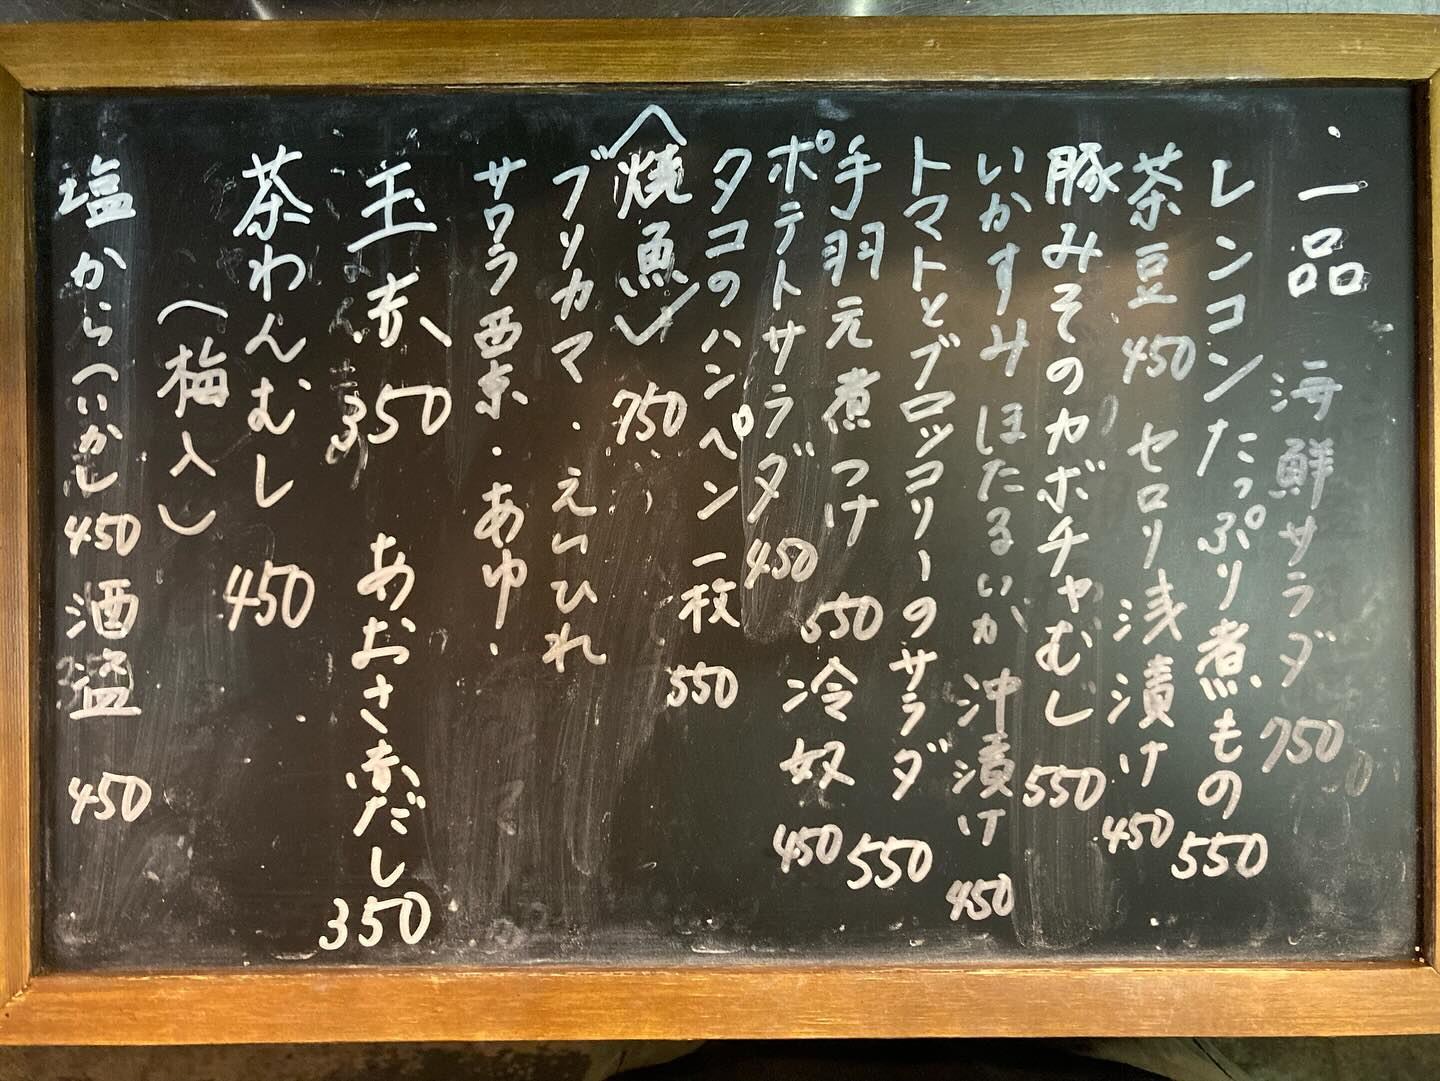 ・一品 海鮮サラダ 750
レンコンたっぷり煮もの 550
茶豆 450 セロリ浅漬け 450
豚みそのカボチャむし 550
いかすみ ほたるいか 沖漬け 450
トマトとブロッコリーのサラダ 550
手羽元煮つけ 550 冷奴 450
ポテトサラダ 450
タコのハンペン 一枚 550
〈焼魚〉 750
ブリカマ・えいひれ
サワラ西京・あゆ・
玉 赤 350 あおさ赤だし 350
茶わんむし 450
(梅入)
塩から(いか) 450 酒盗 450